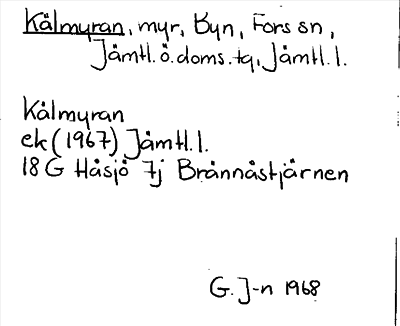 Kälmyran, myr, Byn, Fors sn,
Jämtl. ö. doms. tq, Jämtl. l.
Kälmyran
ek (1967) Jämtl. l.
18 G Håsjö 7j Brännåstjärnen
G. J-n 1968